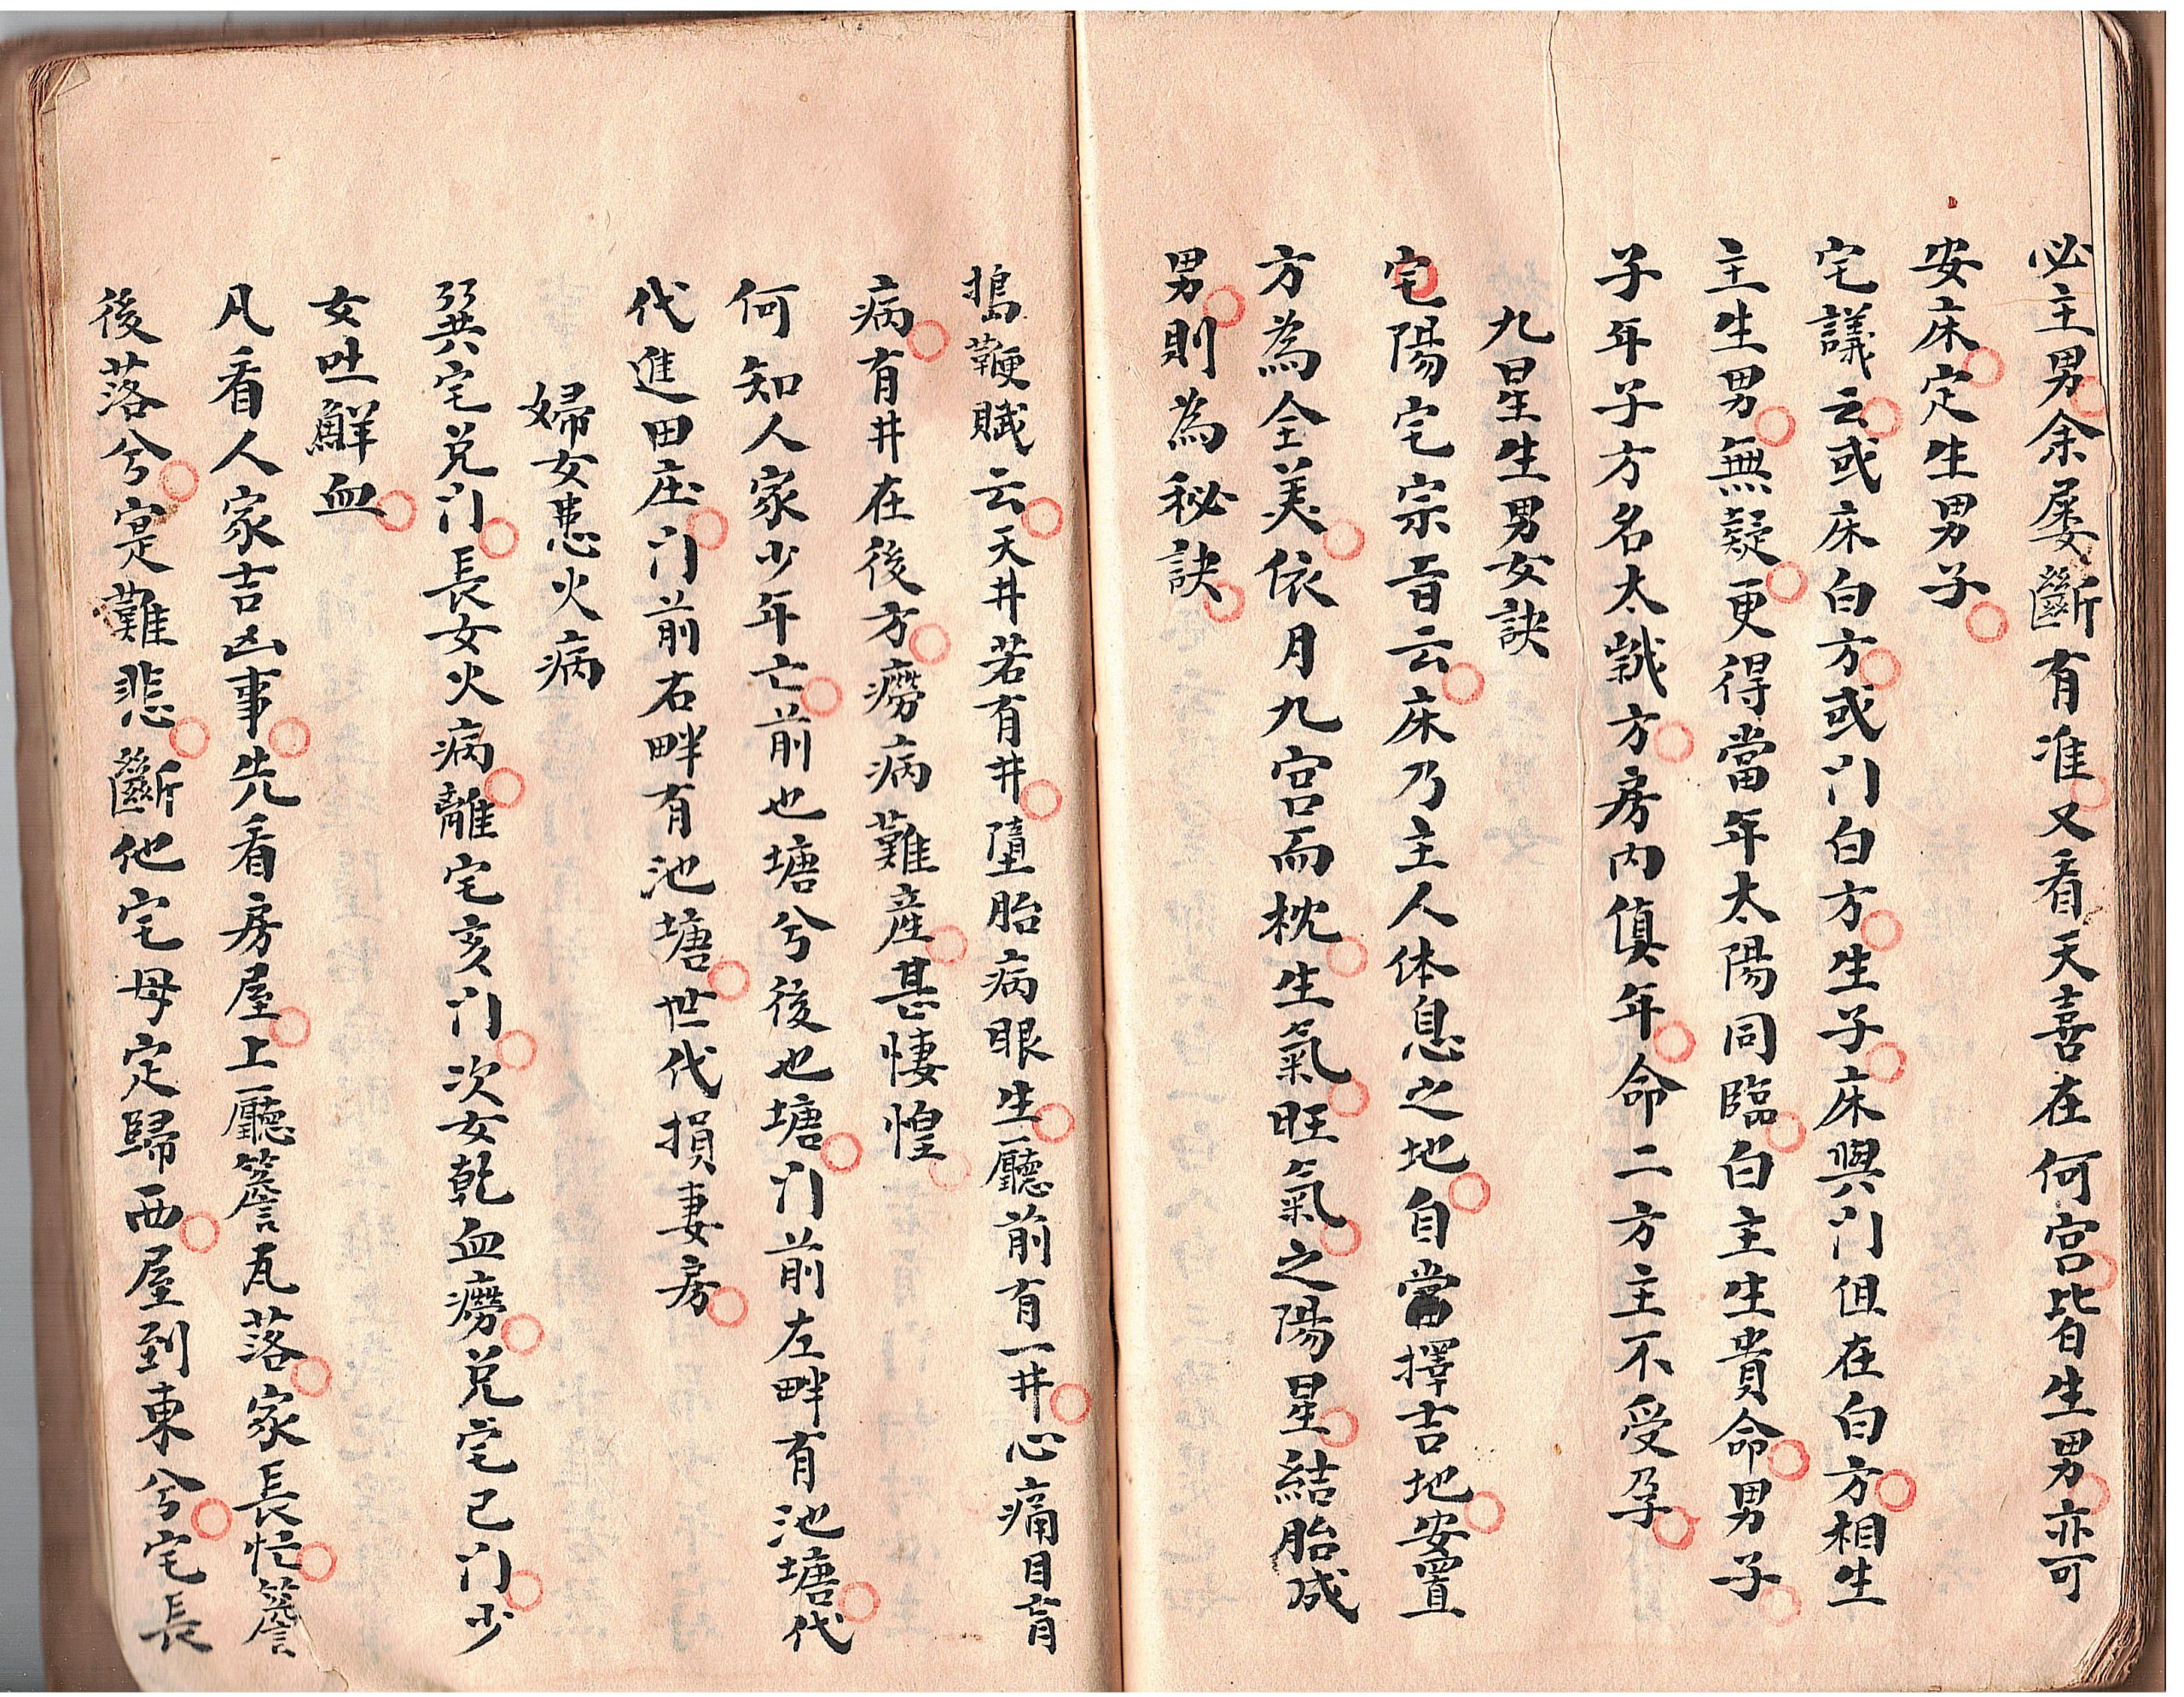 必主男余屡斷有准又看天喜在何宫皆生男亦可
安床定生男子
宅議云或床白方或门白方生子床與门但在白方相生
主生男無疑更得當年太陽同臨白主生貴命男子
子年子方名太歲方房内傎年命二方主不受孕
九星生男女訣
宅陽宅宗旨云床乃主人体息之地自當擇吉地安置
方為全美依月九宫而枕生氣旺氣之陽星結胎成
男則為秘訣
搗鞭賦云天井若有井墮胎病眼生廳前有一井心痛目肓
病有井在後方癆病難産甚悽惶
何知人家少年亡前也塘兮後也塘门前左畔有池塘代
代進田庄门前右畔有池塘世代損妻房
婦女患火病
巽宅兑门長女火病離宅亥门次女乾血癆兑宅已门少
女吐鮮血
凡看人家吉凶事先看房屋上廳簷瓦落家長忙簷
後落兮寔難悲斷他宅母定歸西屋到東兮宅長